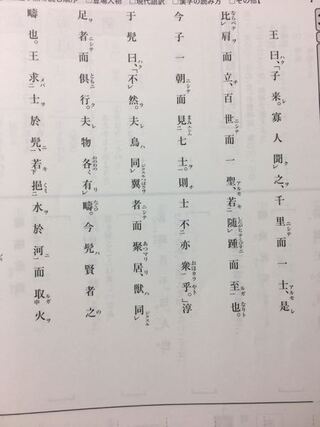 登場人物 □現代語訳 □漢字の読み方 □その他
王曰、「子来。寡人聞之、千里而一士、是
比肩而立、百世而一聖、若随踵而至也。
今子一朝而見七士。則士不亦衆乎。」淳
于髡曰、「不然。夫鳥同翼者而聚居、獣同
足者而俱行。夫物各有疇。今髡賢者之
疇也。王求士於髡、若挹水於河、而取火